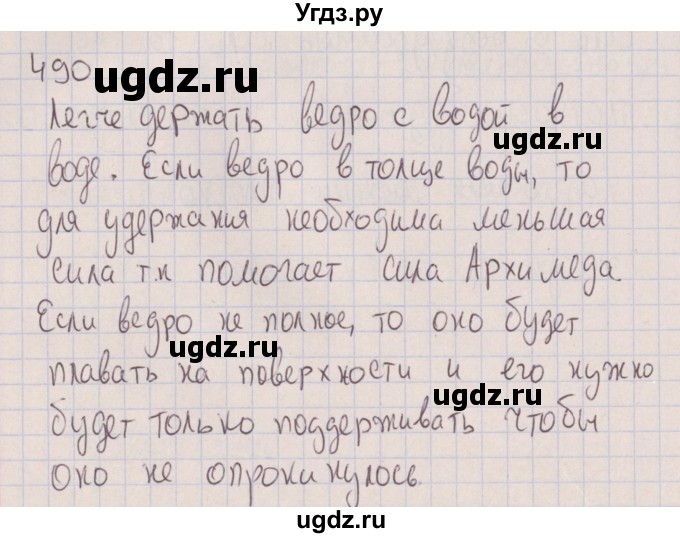 Угдз.ру
490
Легче держать ведро с водой в
воде. Если ведро в толще воды, то
для удержания необходима меньшая
сила т.к помогает сила Архимеда
Если ведро не полное, то оно будет
плавать на поверхности и его нужно
будет только поддерживать чтобы
оно не опрокинулось.
ugdz.ru
ugdz.ru
ugdz.ru
ugdz.ru
ugdz.ru
ugdz.ru